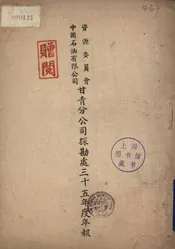 資源委員會
中國石油有限公司
甘青分公司探勘處三十五年度年報
贈閱
上海
圖書館
藏書